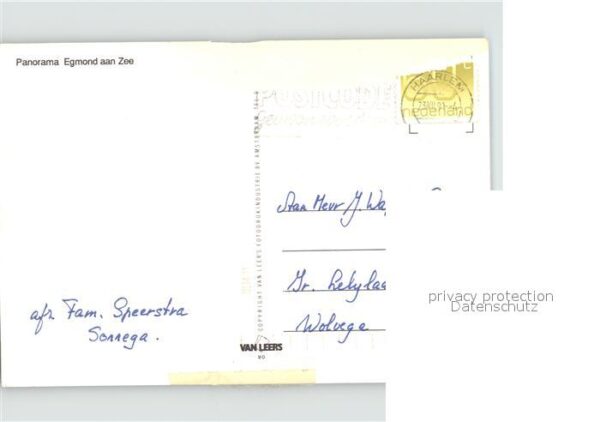 Panorama Egmond aan Zee
POSTCODE
HAARLEM
nederland
COPYRIGHT VAN LEERS FOTODRUKINDUSTRIE BV AMSTERDAM
Aan Mevr J. Wa
Gr. Lelyla
Wolvega
afz. Fam. Speerstra
Sonnega.
VAN LEERS
privacy protection
Datenschutz